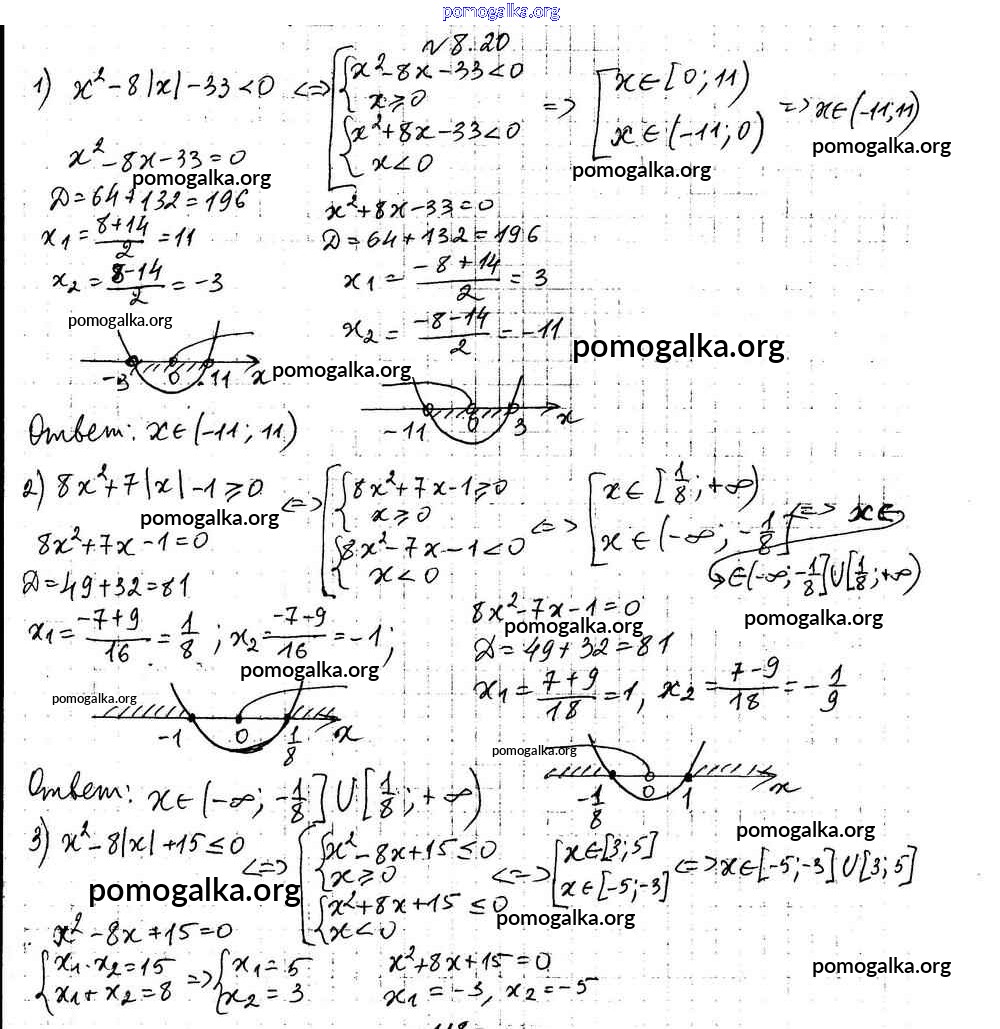 pomogalka.org
№ 8.20
1) x² - 8|x| - 33 < 0 <=> [ { x² - 8x - 33 < 0
x ≥ 0
{ x² + 8x - 33 < 0
x < 0
=> [ x ∈ [0; 11)
x ∈ (-11; 0)
=> x ∈ (-11; 11)
pomogalka.org
pomogalka.org
x² - 8x - 33 = 0
pomogalka.org
Д = 64 + 132 = 196
x₁ = (8+14)/2 = 11
x₂ = (8-14)/2 = -3
x² + 8x - 33 = 0
Д = 64 + 132 = 196
x₁ = (-8+14)/2 = 3
x₂ = (-8-14)/2 = -11
pomogalka.org
pomogalka.org
-3 0 11 x
pomogalka.org
-11 0 3 x
Ответ: x ∈ (-11; 11)
2) 8x² + 7|x| - 1 ≥ 0 <=> [ { 8x² + 7x - 1 ≥ 0
x ≥ 0
{ 8x² - 7x - 1 < 0
x < 0
<=> [ x ∈ [1/8; +∞)
x ∈ (-∞; -1/8]
<=> x ∈
∈ (-∞; -1/8] U [1/8; +∞)
pomogalka.org
pomogalka.org
8x² + 7x - 1 = 0
Д = 49 + 32 = 81
x₁ = (-7+9)/16 = 1/8 ; x₂ = (-7-9)/16 = -1;
pomogalka.org
8x² - 7x - 1 = 0
pomogalka.org
Д = 49 + 32 = 81
x₁ = (7+9)/18 = 1, x₂ = (7-9)/18 = -1/9
pomogalka.org
-1 0 1/8 x
pomogalka.org
-1/8 0 1 x
Ответ: x ∈ (-∞; -1/8] U [1/8; +∞)
3) x² - 8|x| + 15 ≤ 0 <=> [ { x² - 8x + 15 ≤ 0
x ≥ 0
{ x² + 8x + 15 ≤ 0
x < 0
<=> [ x ∈ [3; 5]
x ∈ [-5; -3]
<=> x ∈ [-5; -3] U [3; 5]
pomogalka.org
pomogalka.org
pomogalka.org
x² - 8x + 15 = 0
{ x₁ · x₂ = 15
x₁ + x₂ = 8
=> { x₁ = 5
x₂ = 3
x² + 8x + 15 = 0
x₁ = -3, x₂ = -5
pomogalka.org